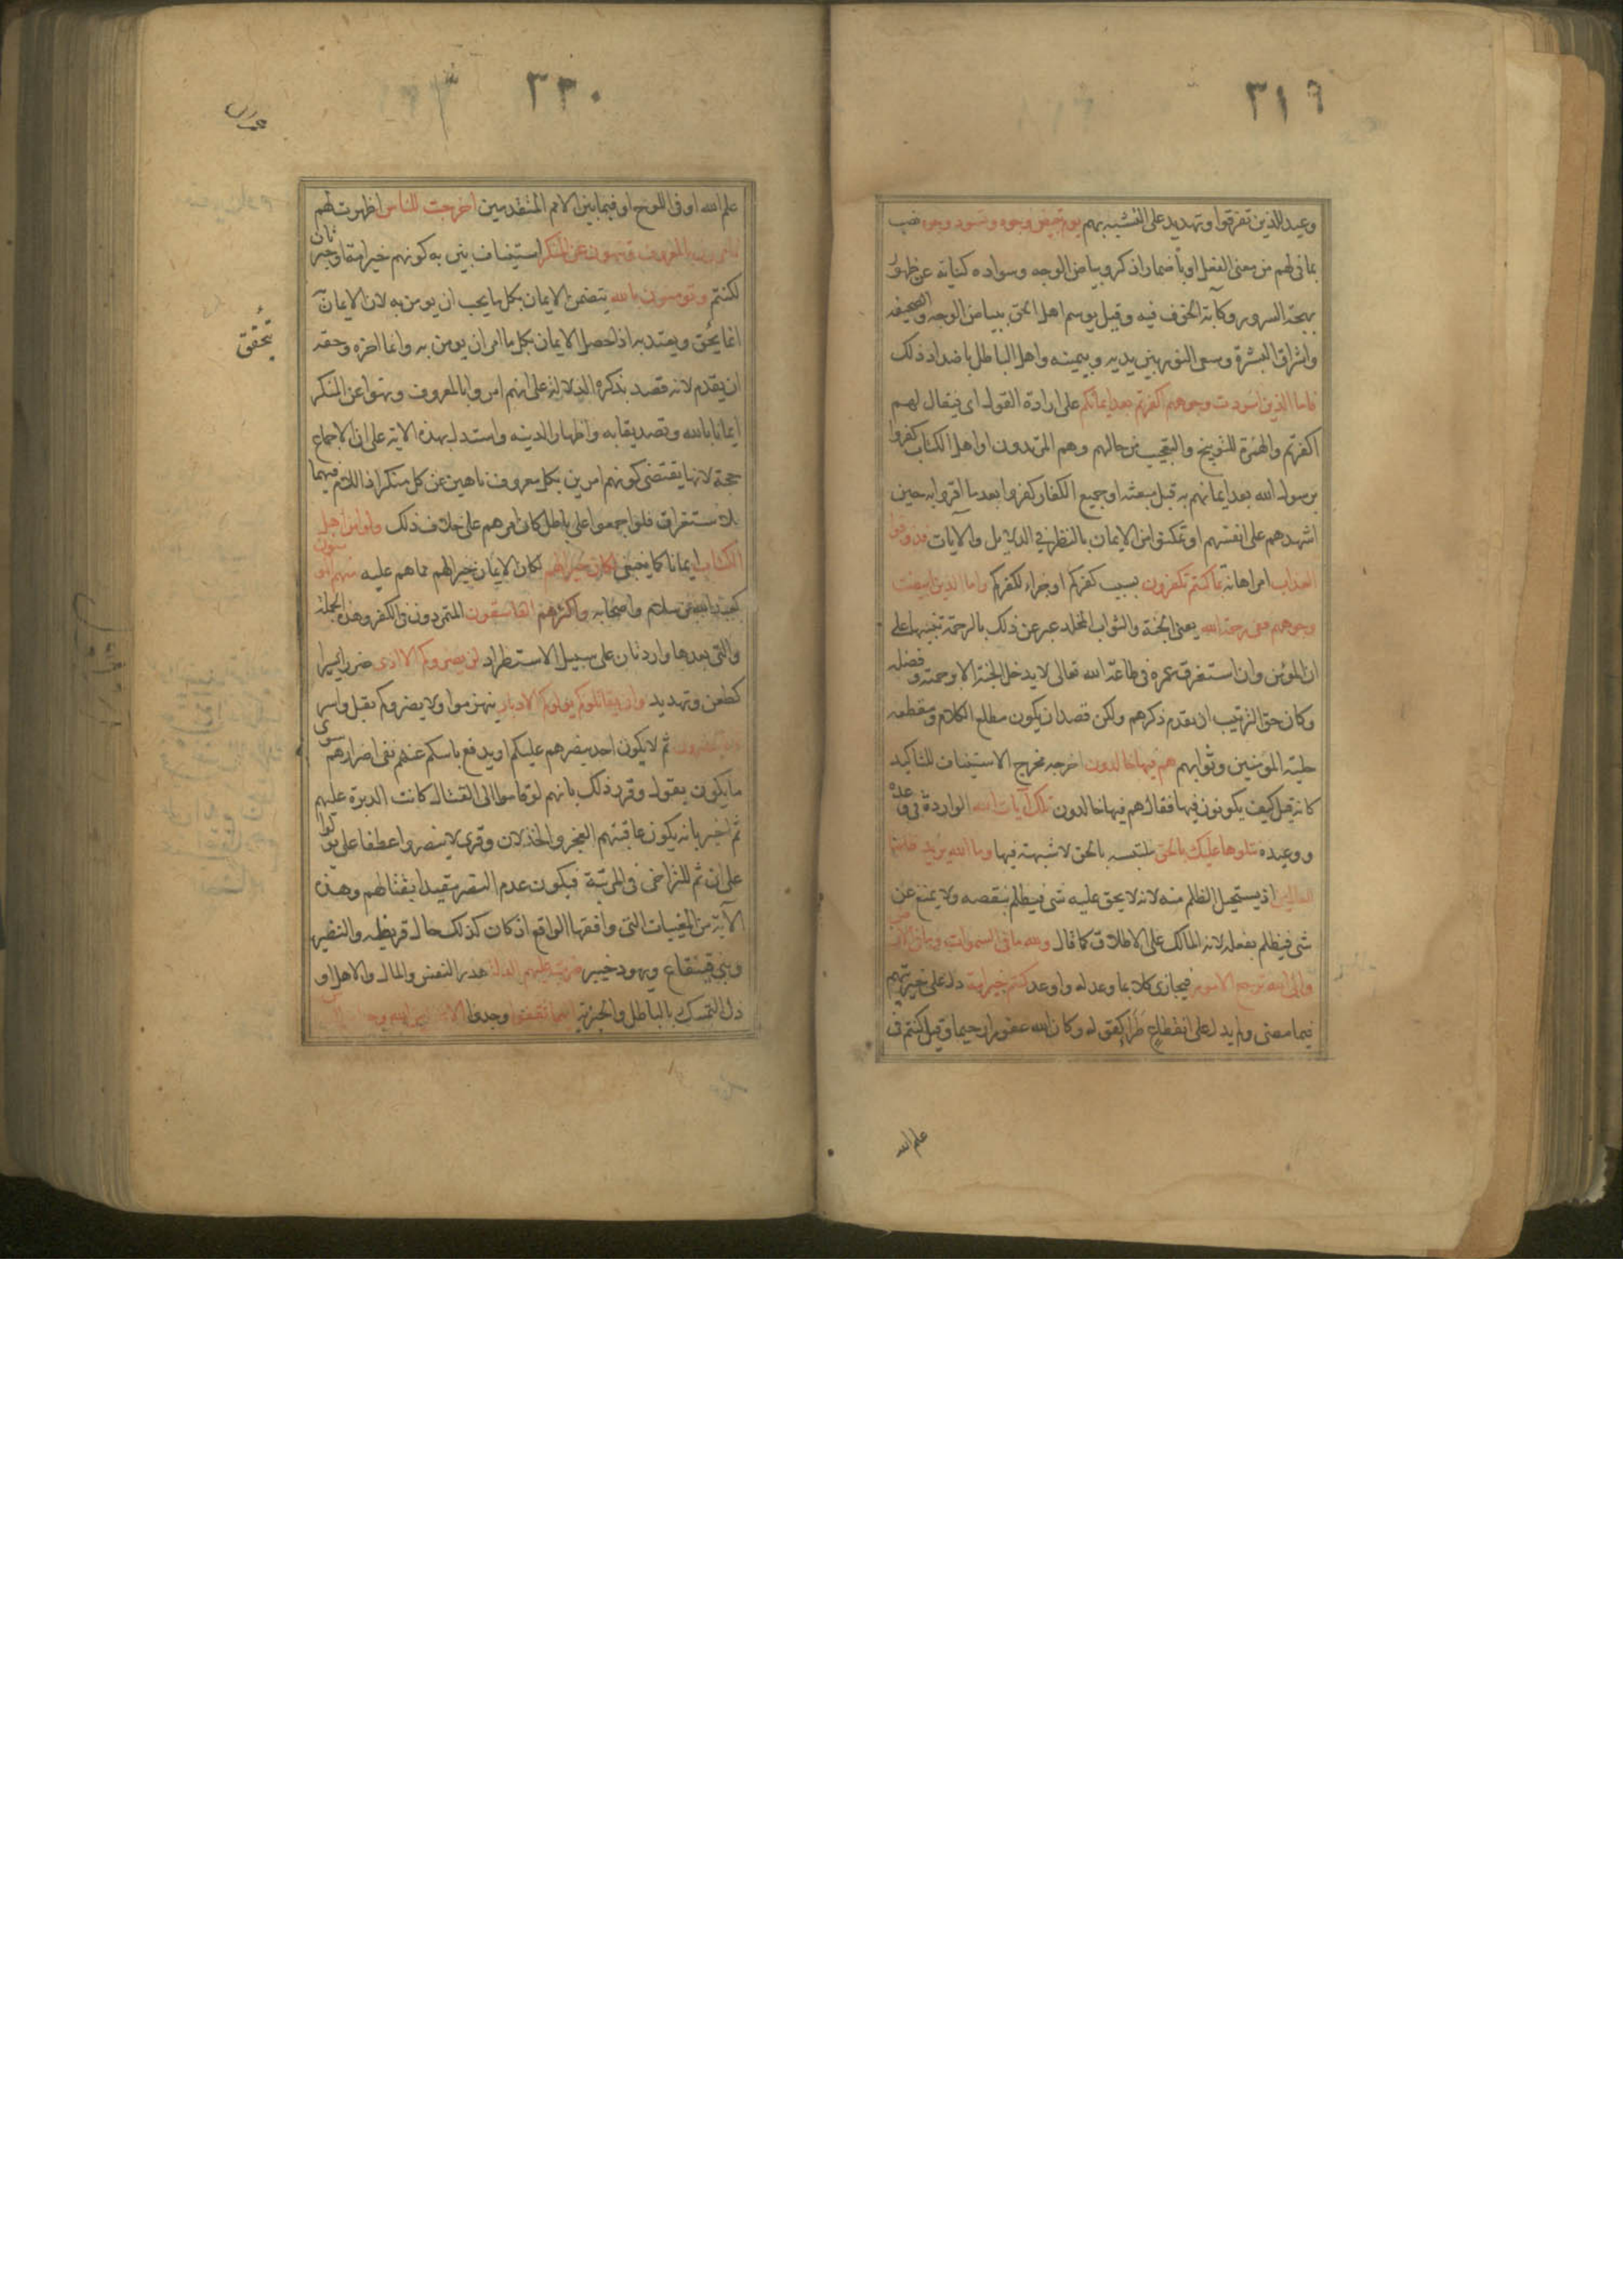 ٣١٩
وعيد للذين تفرقوا وتهديد على التشبه بهم يوم تبيض وجوه وتسود وجوه نصب
بما فى لهم من معنى الفعل او باضمار اذكر وبياض الوجه وسواده كنايتان عن ظهور
بهجة السرور وكآبة الخوف فيه وقيل يوسم اهل الحق ببياض الوجه والصحيفه
واشراق البشرة وسعى النور بين يديه وبيمينه واهل الباطل باضداد ذلك
فاما الذين اسودت وجوههم اكفرتم بعد ايمانكم على ارادة القول اى فيقال لهم
اكفرتم والهمزة للتوبيخ والتعجيب من حالهم وهم المرتدون او اهل الكتاب كفروا
برسول الله بعد ايمانهم به قبل مبعثه او جميع الكفار كفروا بعد ما اقروا به حين
اشهدهم على انفسهم او تمكنوا من الايمان بالنظر فى الدلايل والآيات فذوقوا
العذاب امر اهانة بما كنتم تكفرون بسبب كفركم او جزاء لكفركم واما الذين ابيضت
وجوههم ففى رحمة الله يعنى الجنة والثواب المخلد عبر عن ذلك بالرحمة تنبيها على
ان المؤمن وان استغرق عمره فى طاعة الله تعالى لا يدخل الجنة الا برحمته وفضله
وكان حق الترتيب ان يقدم ذكرهم ولكن قصد ان يكون مطلع الكلام ومقطعه
حلية المؤمنين وثوابهم هم فيها خالدون اخرجه مخرج الاستيناف للتاكيد
كانه قيل كيف يكونون فيها فقال هم فيها خالدون تلك آيات الله الواردة فى وعده
ووعيده نتلوها عليك بالحق ملتبسه بالحق لا شبهة فيها وما الله يريد ظلما
للعالمين اذ يستحيل الظلم منه لانه لا يحق عليه شى فيظلم بنقصه ولا يمنع عن
شى فيظلم بفعله لانه المالك على الاطلاق كما قال ولله ما فى السموات وما فى الارض
والى الله ترجع الامور فيجازى كلا بما وعد له واوعد كنتم خير امة دل على خيريتهم
فيما مضى ولم يدل على انقطاع طرأ كقوله وكان الله غفورا رحيما وقيل كنتم فى
علم الله
٣٢٠
علم الله او فى اللوح او فيما بين الامم المتقدمين اخرجت للناس اظهرت لهم
تامرون بالمعروف وتنهون عن المنكر استيناف بين به كونهم خير امة او خبر ثان
لكنتم وتومنون بالله يتضمن الايمان بكل ما يجب ان يومن به لان الايمان
انما يحق ويعتد به اذا حصل الايمان بكل ما امر ان يومن به وانما اخره وحقه
يتحقق
ان يقدم لانه قصد بذكره الدلالة على انهم امروا بالمعروف ونهوا عن المنكر
ايمانا بالله وتصديقا به واظهارا لدينه واستدل بهذه الاية على ان الاجماع
حجة لانها يقتضى كونهم امرين بكل معروف ناهين عن كل منكر اذ اللام فيهما
للاستغراق فلو اجمعوا على باطل كان امرهم على خلاف ذلك ولو امن اهل
الكتاب ايمانا كما ينبغى لكان خيرا لهم لكان الايمان خيرا لهم مما هم عليه منهم المومنون
كعبد الله بن سلام واصحابه واكثرهم الفاسقون المتمردون فى الكفر وهذه الجملة
والتى بعدها واردتان على سبيل الاستطراد لن يضروكم الا اذى ضررا يسيرا
كطعن وتهديد وان يقاتلوكم يولوكم الادبار ينهزموا ولا يضروكم بقتل واسر
ثم لا ينصرون ثم لا يكون احد ينصرهم عليكم او يدفع باسكم عنهم نفى اضرارهم سوى
ما يكون بقول وقرر ذلك بانهم لو قاموا الى القتال كانت الدبرة عليهم
ثم اخبر بانه يكون عاقبتهم العجز والخذلان وقرى لا ينصروا عطفا على يولوا
على ان ثم للتراخى فى المرتبة فيكون عدم النصر مقيدا بقتالهم وهذه
الآية من المغيبات التى وافقها الواقع اذ كان كذلك حال قريظه والنضير
وبنى قينقاع ويهود خيبر ضربت عليهم الذلة هدر النفس والمال والاهل او
ذل التمسك بالباطل والجزية اينما ثقفوا وجدوا الا بحبل من الله وحبل من الناس